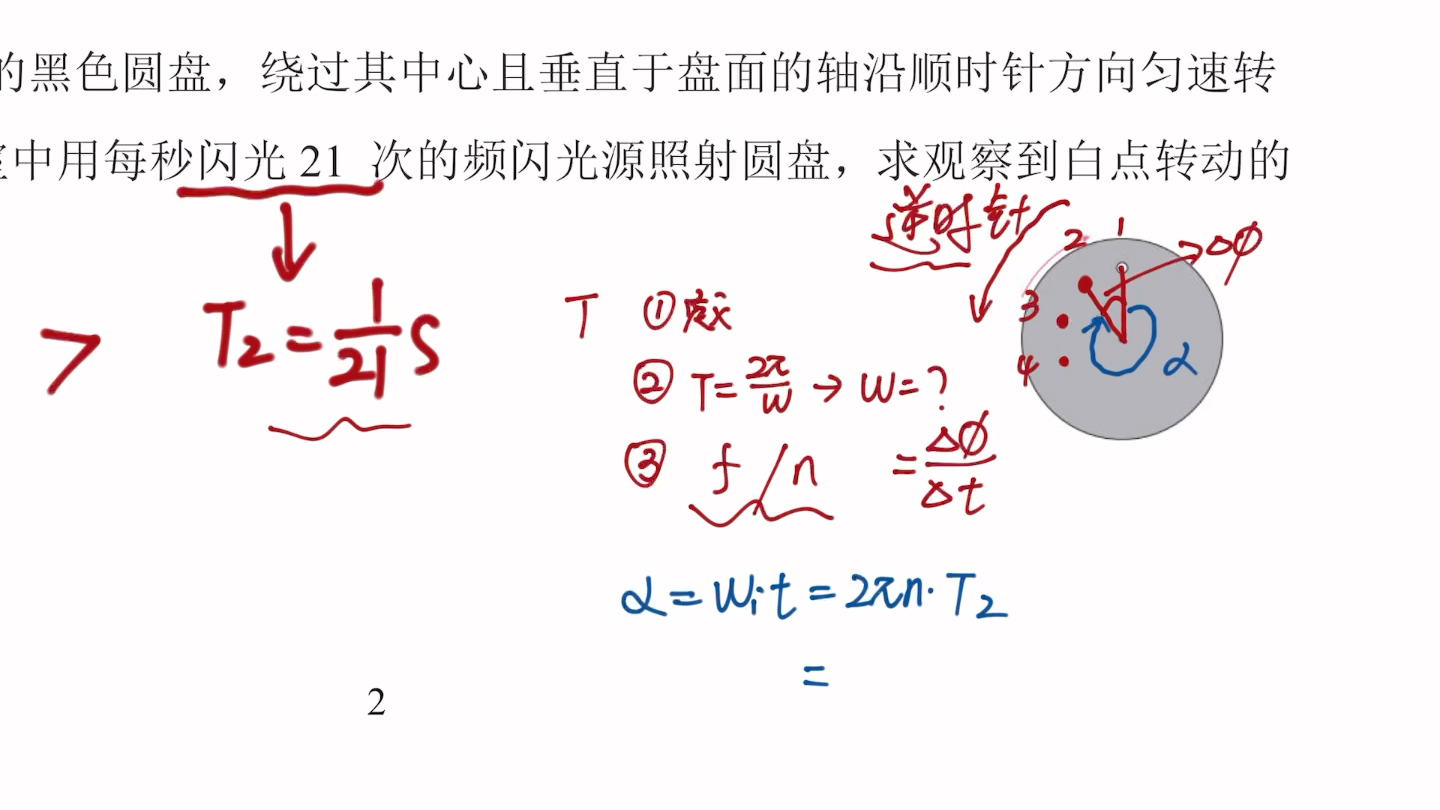 的黑色圆盘，绕过其中心且垂直于盘面的轴沿顺时针方向匀速转
中用每秒闪光 21 次的频闪光源照射圆盘，求观察到白点转动的
逆时针
1
2
Δφ
3
4
α
> T₂=1/21 S
T ①定义
② T=2π/W → W=?
③ f/n =Δφ/Δt
α=W₁t=2πn·T₂
=
2